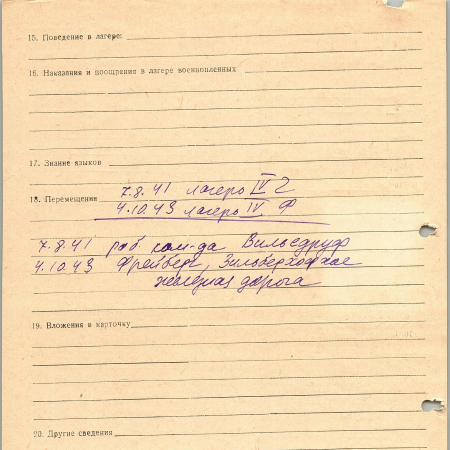 15. Поведение в лагере:
16. Наказания и поощрения в лагере военнопленных
17. Знание языков
18. Перемещения 7.8.41 лагерь IV Г
4.10.43 лагерь IV Ф
7.8.41 раб. ком-да Вильсдруф
4.10.43 Фрейберг, Зильберхофская
железная дорога
19. Вложения в карточку
20. Другие сведения